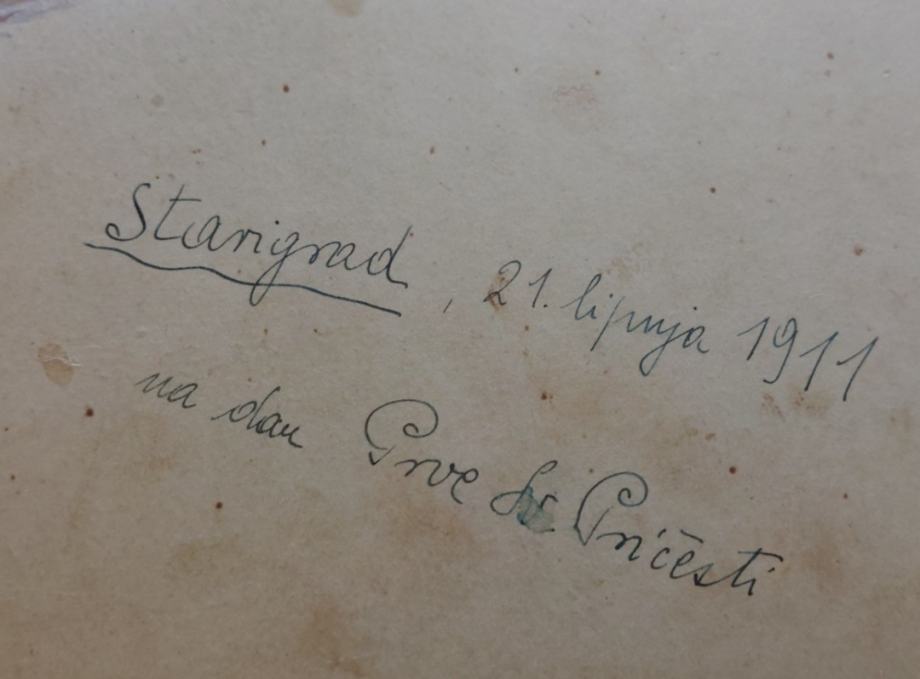 Starigrad, 21. lipnja 1911
na dan Prve Sv. Pričesti